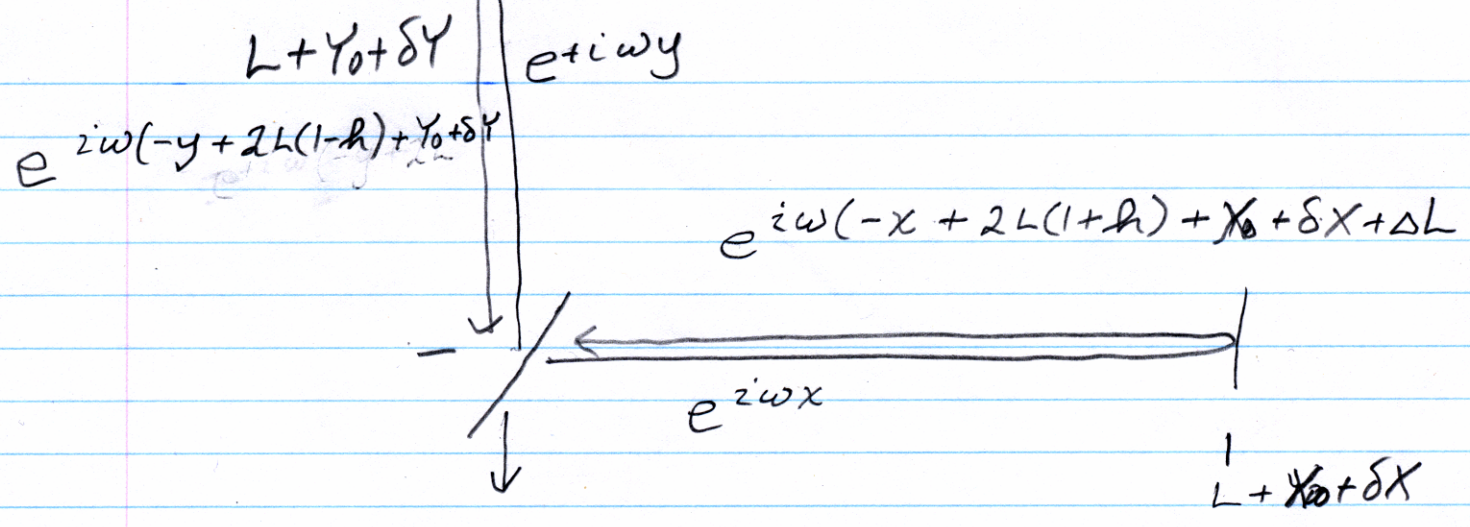 L + Y₀ + δY
e^{+iωy}
e^{iω(-y + 2L(1-h) + Y₀ + δY}
e^{iω(-x + 2L(1+h) + X₀ + δX + ΔL}
e^{iωx}
L + X₀ + δX